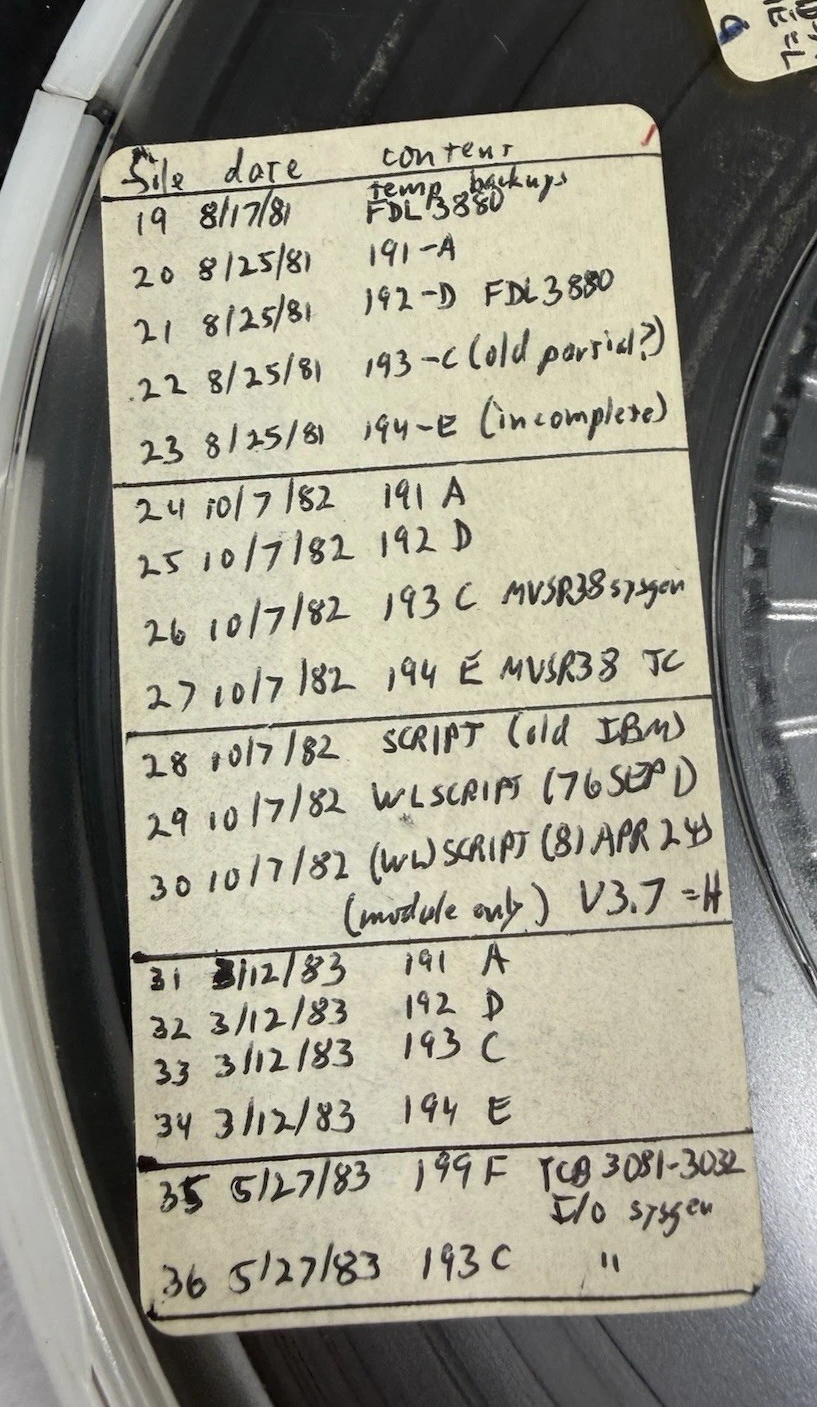 file date content
temp backups
19 8/17/81 FDL 3880
20 8/25/81 191-A
21 8/25/81 192-D FDL3880
22 8/25/81 193-C (old partial?)
23 8/25/81 194-E (incomplete)
24 10/7/82 191 A
25 10/7/82 192 D
26 10/7/82 193 C MVSR38 sysgen
27 10/7/82 194 E MVSR38 JC
28 10/7/82 SCRIPT (old IBM)
29 10/7/82 WLSCRIPT (76 SEP 1)
30 10/7/82 (WL)SCRIPT (81 APR 24)
(module only) V3.7 =H
31 3/12/83 191 A
32 3/12/83 192 D
33 3/12/83 193 C
34 3/12/83 194 E
35 5/27/83 199 F 3081-3032
I/O sysgen
36 5/27/83 193 C "